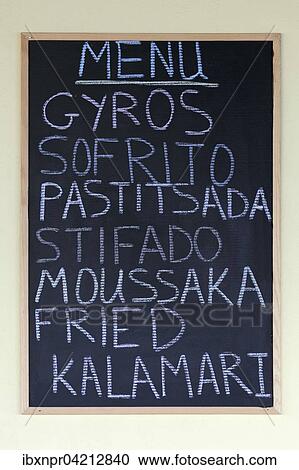 MENU
GYROS
SOFRITO
PASTITSADA
STIFADO
MOUSSAKA
FRIED
KALAMARI
fotosearch.com
ibxnpr04212840 www.fotosearch.com